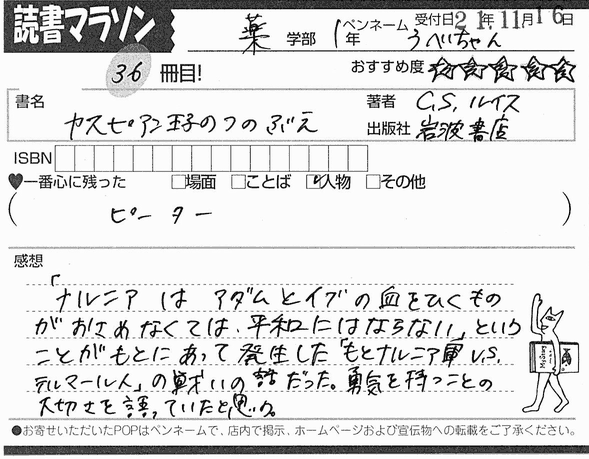 読書マラソン
薬 学部 1年 ペンネーム うべいちゃん 受付日21年11月16日
36 冊目! おすすめ度 ☆☆☆☆☆
書名 カスピアン王子のつのぶえ
著者 C.S.ルイス
出版社 岩波書店
ISBN
♥一番心に残った □場面 □ことば ☑人物 □その他
( ピーター )
感想
「ナルニアはアダムとイブの血をひくもの
がおさめなくては、平和にはならない」という
ことがもとにあって発生した「もとナルニア軍V.S.
テルマール人」の戦いの話だった。勇気を持つことの
大切さを語っていたと思う。
●お寄せいただいたPOPはペンネームで、店内で掲示、ホームページおよび宣伝物への転載をご了承ください。